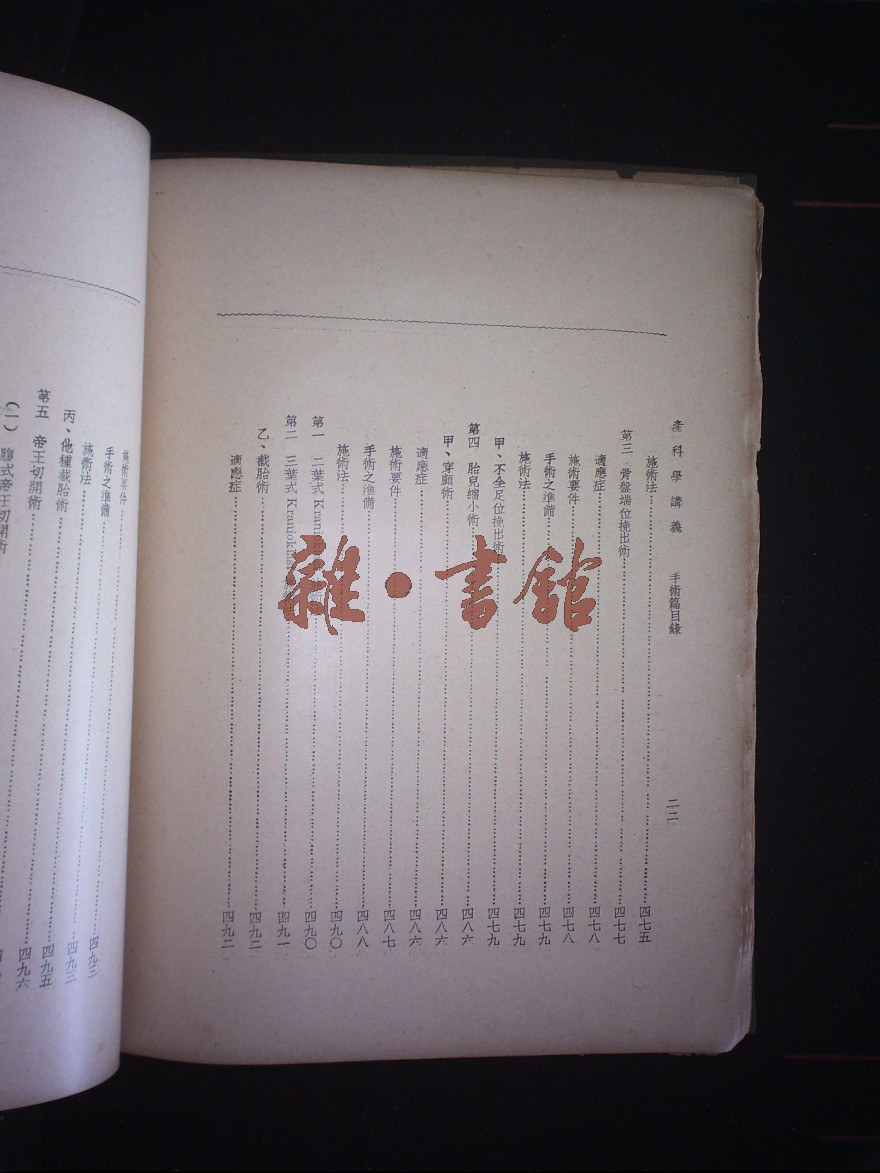 產科學講義 手術篇目錄 二二
施術法 四七五
第三 骨盤端位挽出術 四七七
適應症 四七八
施術要件 四七八
手術之準備 四七九
施術法 四七九
甲、不全足位挽出術 四七九
第四 胎兒縮小術 四八六
甲、穿顱術 四八六
適應症 四八六
施術要件 四八七
手術之準備 四八八
施術法 四九〇
第一 二葉式 四九〇
第二 三葉式 四九一
乙、截胎術 四九二
適應症 四九二
施術要件 四九三
手術之準備 四九三
施術法
丙、他種截胎術 四九三
第五 帝王切開術 四九五
(一)腹式帝王切開術 四九六
雜·書館